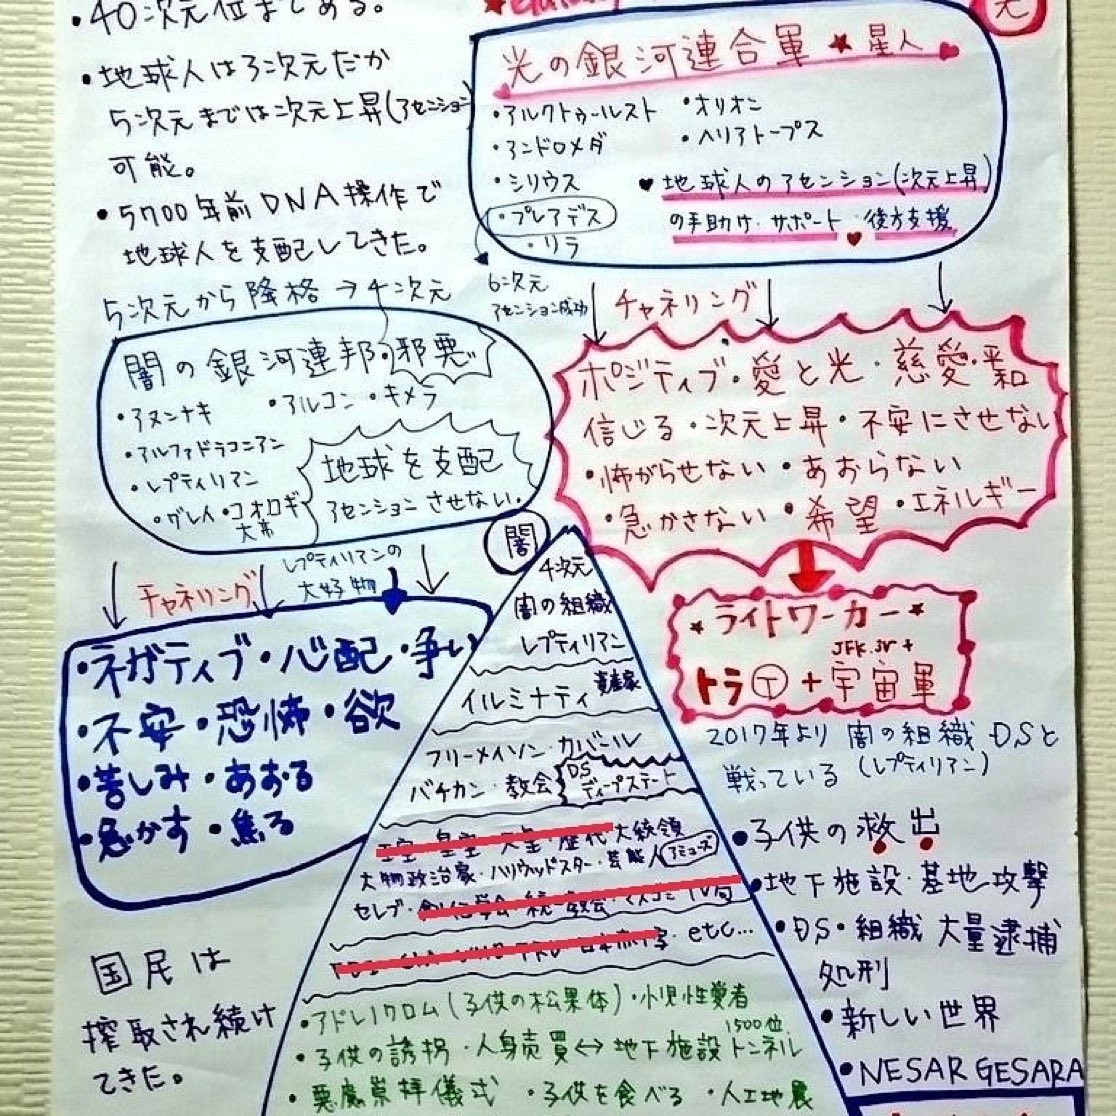 ・40次元位まである。
・地球人は3次元だが
5次元までは次元上昇(アセンション)
可能。
・5700年前DNA操作で
地球人を支配してきた。
5次元から降格→4次元
光
光の銀河連合軍 ★星人
・アルクトゥールスト ・オリオン
・アンドロメダ ・ヘリアトープス
・シリウス
・プレアデス
・リラ
♥地球人のアセンション(次元上昇)
の手助け・サポート・後方支援
6次元
アセンション成功
チャネリング
闇の銀河連邦・邪悪
・アヌンナキ ・アルコン ・キメラ
・アルファドラコニアン
・レプティリアン
・グレイ・コオロギ
大帝
地球を支配
アセンションさせない。
ポジティブ・愛と光・慈愛・平和
信じる・次元上昇・不安にさせない
・怖がらせない・あおらない
・急かさない・希望・エネルギー
チャネリング
レプティリアンの
大好物
・ネガティブ・心配・争い
・不安・恐怖・欲
・苦しみ・あおる
・急かす・焦る
★ライトワーカー★
JFK.Jr+
トラT+宇宙軍
2017年より闇の組織・DSと
戦っている(レプティリアン)
闇
4次元
闇の組織
レプティリアン
イルミナティ 資産家
フリーメイソン・カバール
バチカン・教会
DS
ディープステート
歴代大統領
大物政治家・ハリウッドスター・芸能人
アミューズ
セレブ・
etc...
・アドレノクロム(子供の松果体)・小児性愛者
・子供の誘拐・人身売買↔地下施設トンネル
1500位
・悪魔崇拝儀式 ・子供を食べる ・人工地震
国民は
搾取され続け
てきた。
・子供の救出
・地下施設・基地攻撃
・DS・組織 大量逮捕
処刑
・新しい世界
・NESAR GESARA